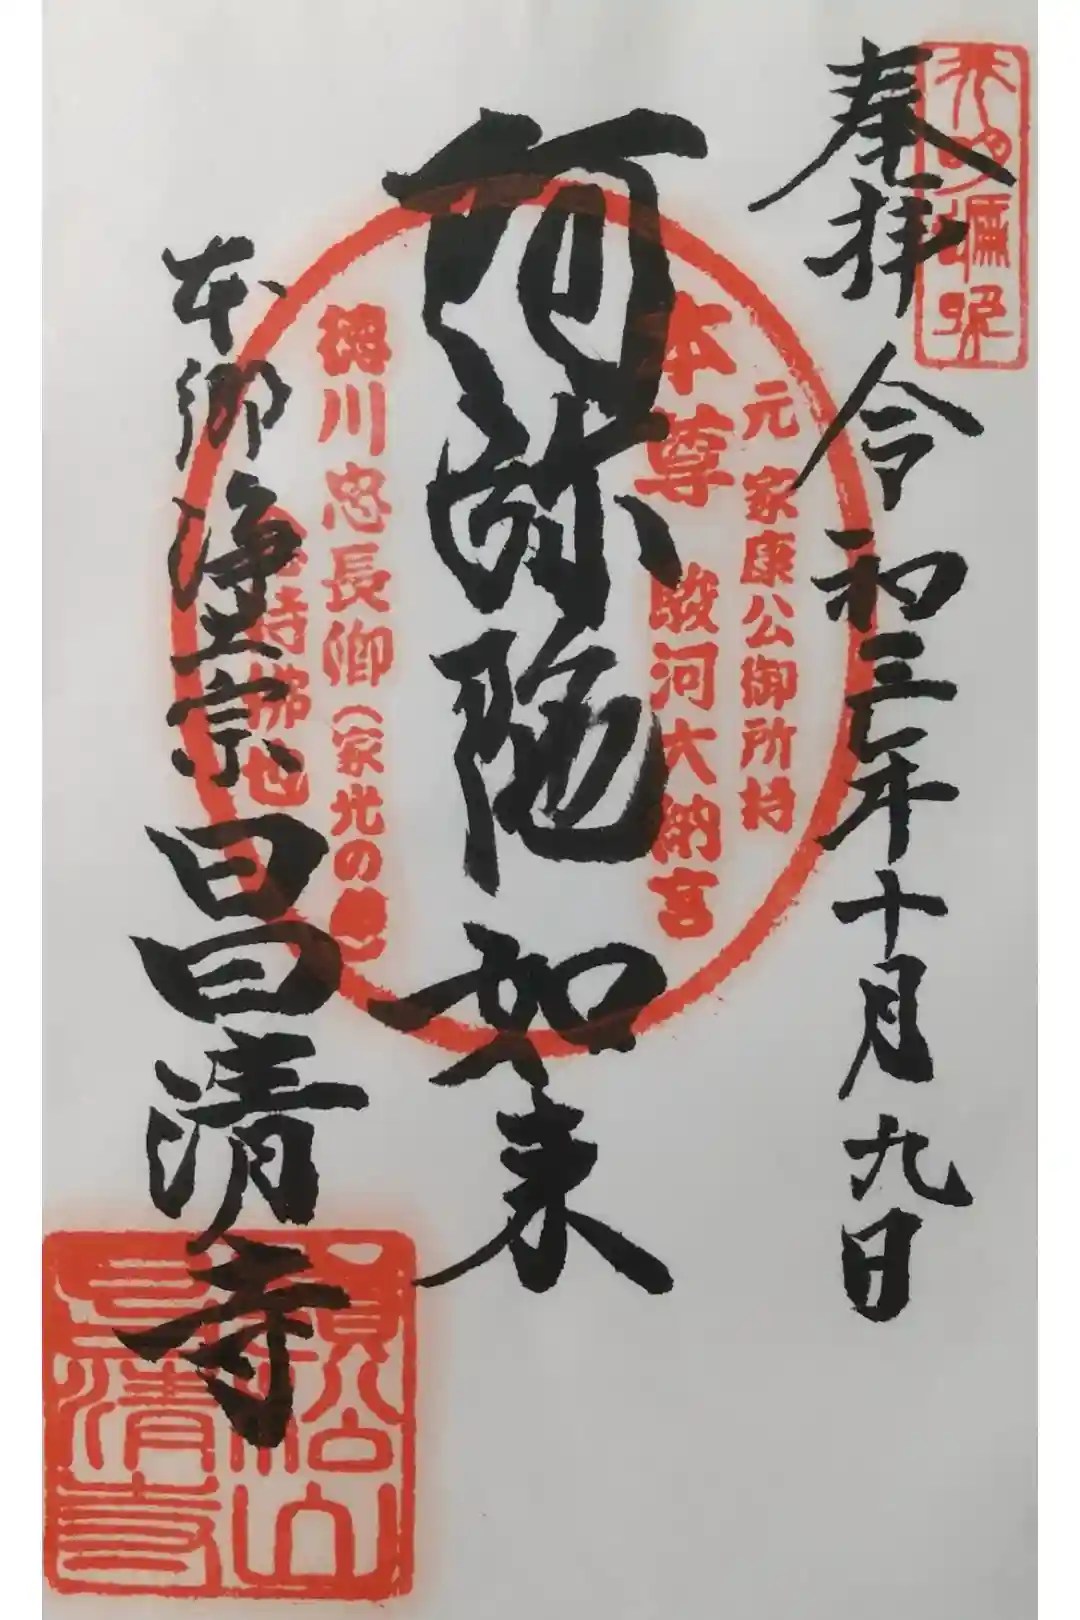 奉拝 令和三年十月九日
元 家康公御所持
本尊 駿河大納言
阿弥陀如来
徳川忠長卿(家光の
持佛也
本郷 浄土宗 昌清寺
願松山
昌清寺